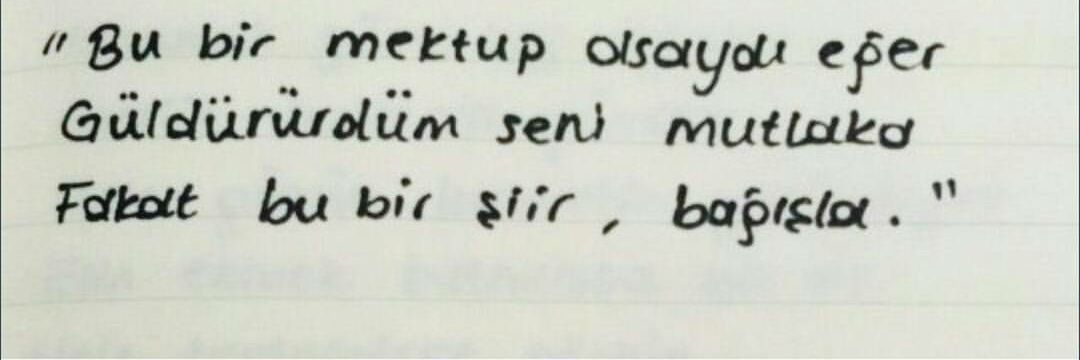 "Bu bir mektup olsaydı eğer
Güldürürdüm seni mutlaka
Fakat bu bir şiir, bağışla."